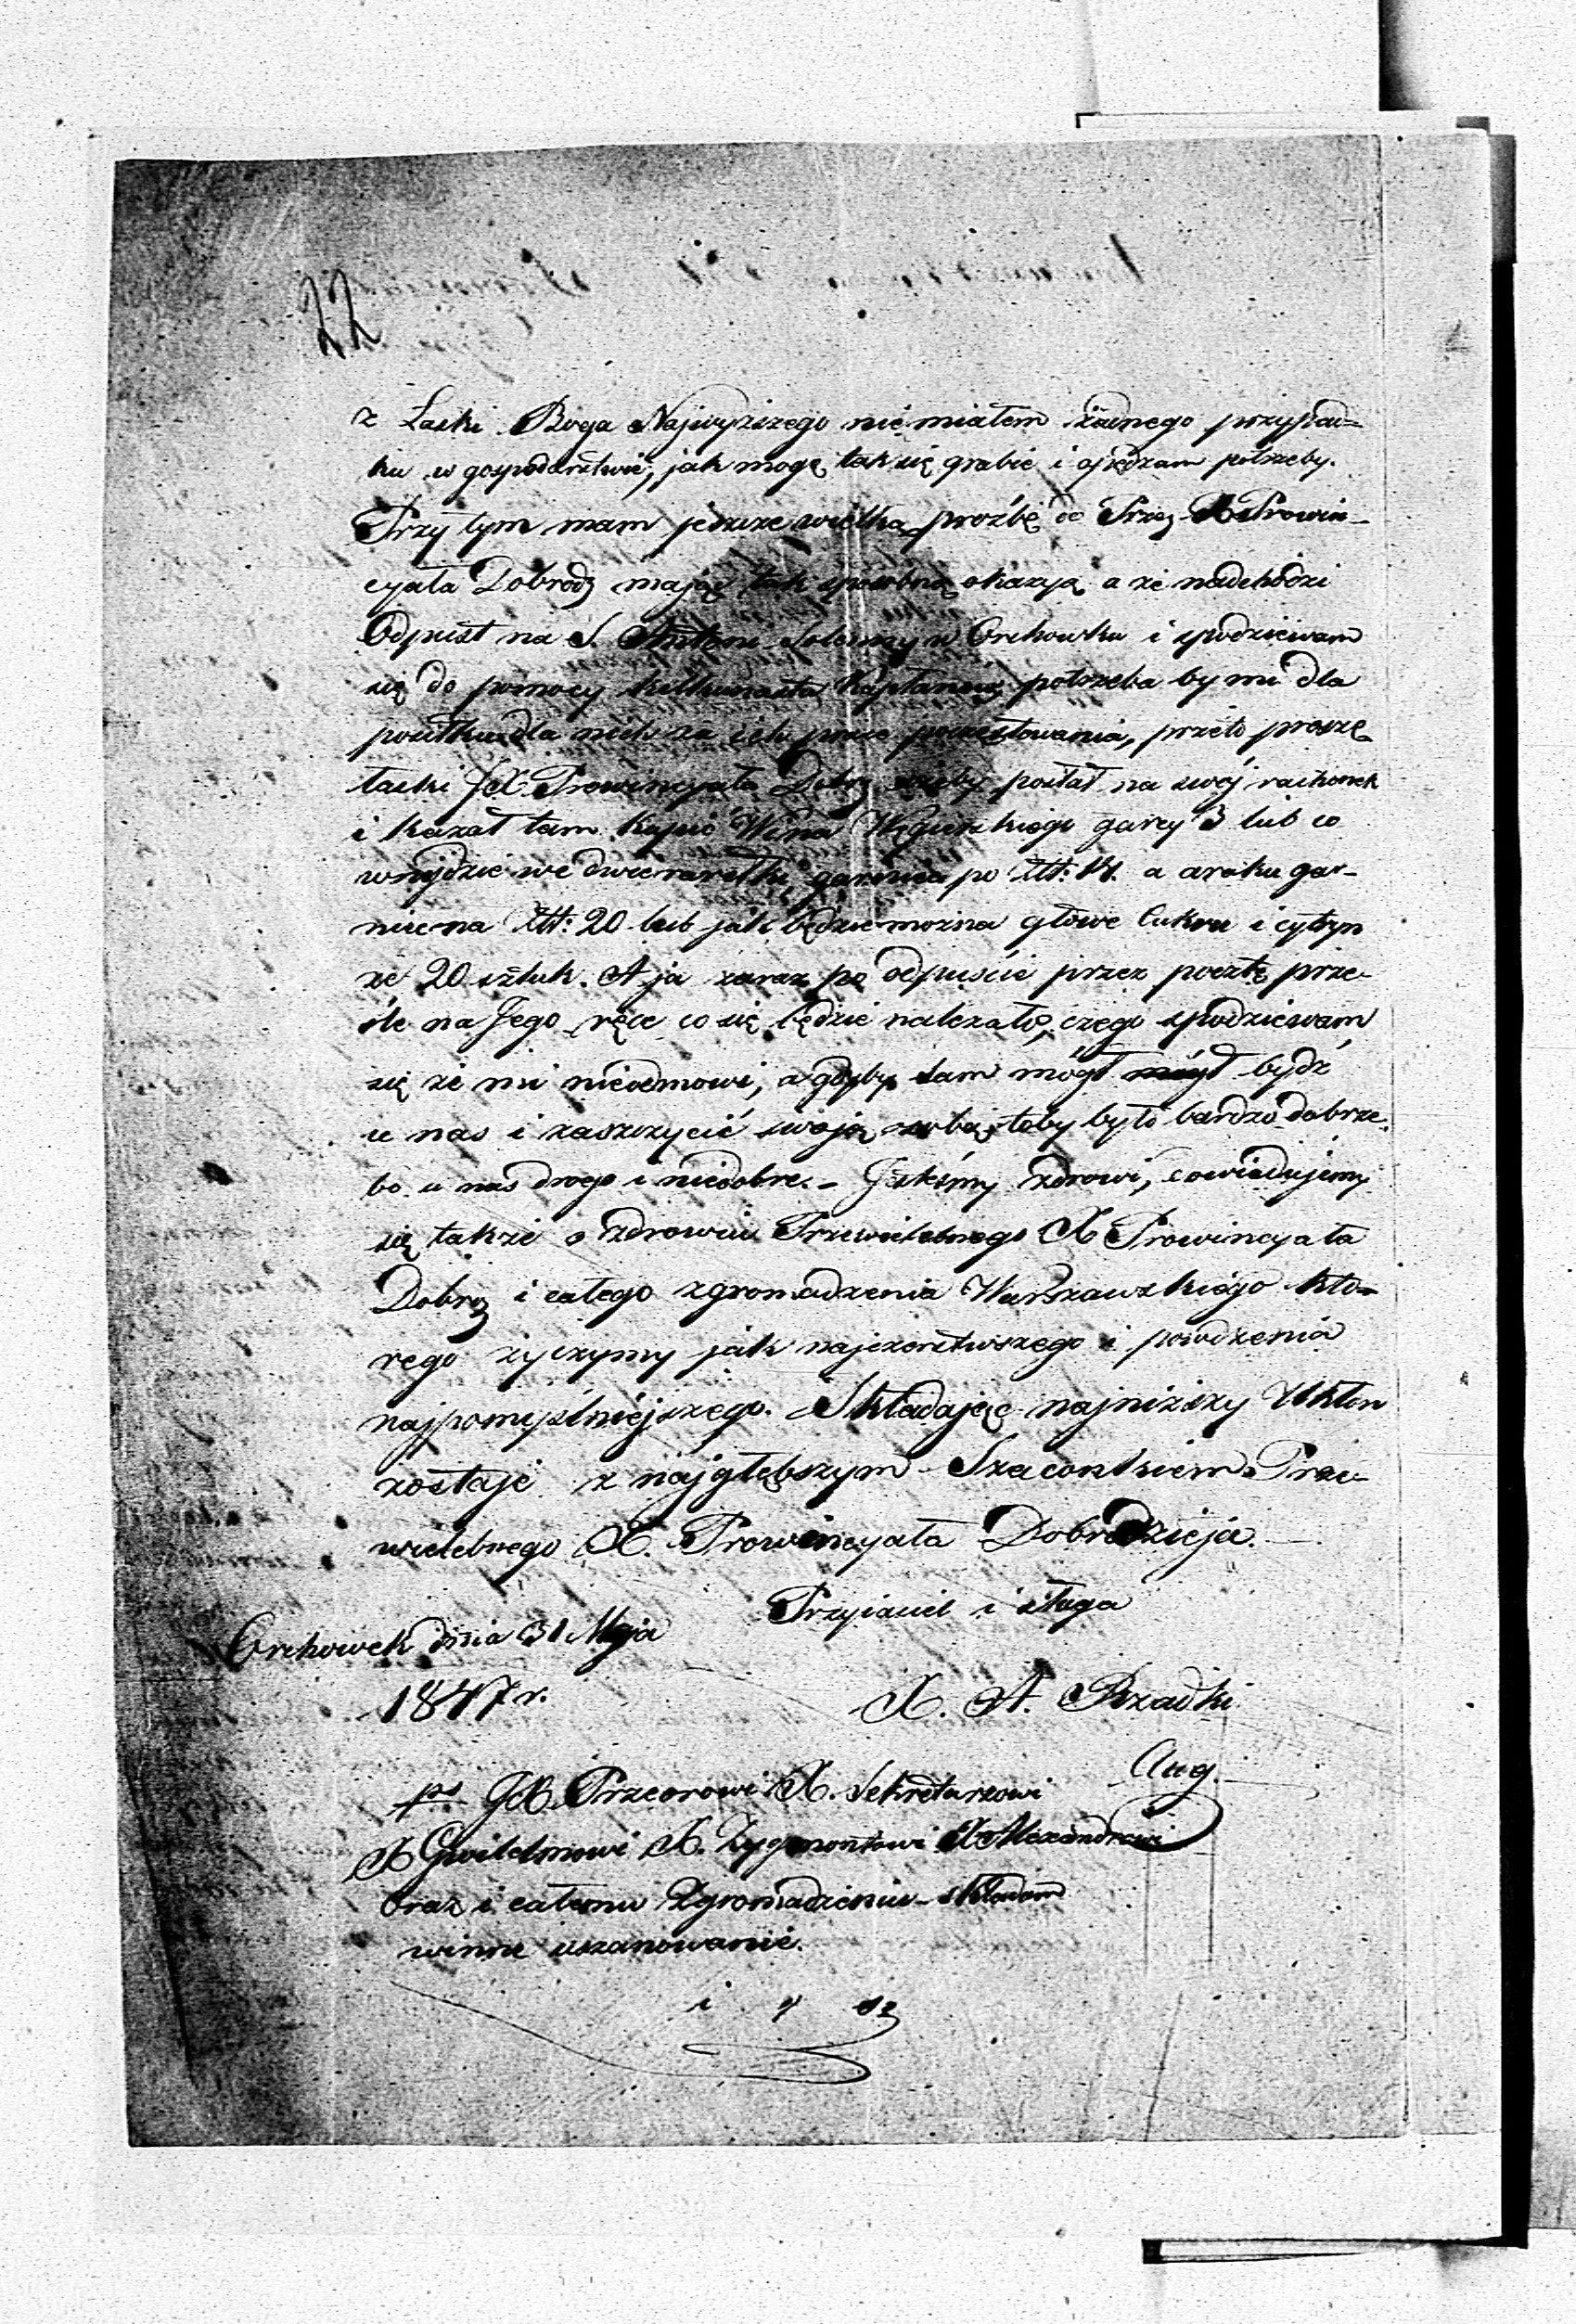 22
z Łaski Boga Najwyższego nie miałem żadnego przypad-
ku w gospodarstwie, jak mogę tak się grabie i opędzam potrzeby.
Przy tym mam jeszcze wielką proźbę do Przez X Prowin-
cyała Dobrodz mając tak sposobną okazyą a że nadchodzi
Odpust na S. Antoni Solenny w Orchowku i spodziewam
się do pomocy kilkunastu Kapłanów potrzeba by mi dla
posiłku dla nich za ich prace poczęstowania, przeto proszę
łaski JX. Prowincyała Dobrz ażeby posłał na swój rachonek
i kazał tam kupić Wina Węgierskiego garcy 3 lub co
wnijdzie we dwie garniec po Złł: a araku gar-
niec na Złł: 20 lub jak będzie można głowe Cukru i cytryn
ze 20 sztuk. A ja zaraz po odpuście przez pocztę prze-
śle na Jego ręce co się będzie należało, czego spodziewam
się że mi nieodmowi, a gdyby sam mógł mógł bydź
u nas i zaszczycić swoją osobą, toby było bardzo dobrze.
bo u nas drogo i niedobre. - Jesteśmy zdrowi, dowiadujemy
się także o zdrowiu Przewielebnego X Prowincyała
Dobrz i całego zgromadzenia Warszawskiego któ-
rego życzymy jak najczerstwszego i powdzenia
najpomyślniejszego. Składając najniższy Ukłon
zostaje z najgłębszym Szaconkiem Prze-
wielebnego X. Prowincyała Dobrodzieja.
Przyiaciel i sługa
Orchowek dnia 31 Maja
1847 r.
X. A. Rzadki
Aug.
ps JX. Przeorowi X. Sekretarzowi
X Gwilelmowi X. Zygmontowi X Alexandrowi
Oraz i całemu Zgromadzeniu składam
winne uszanowanie.